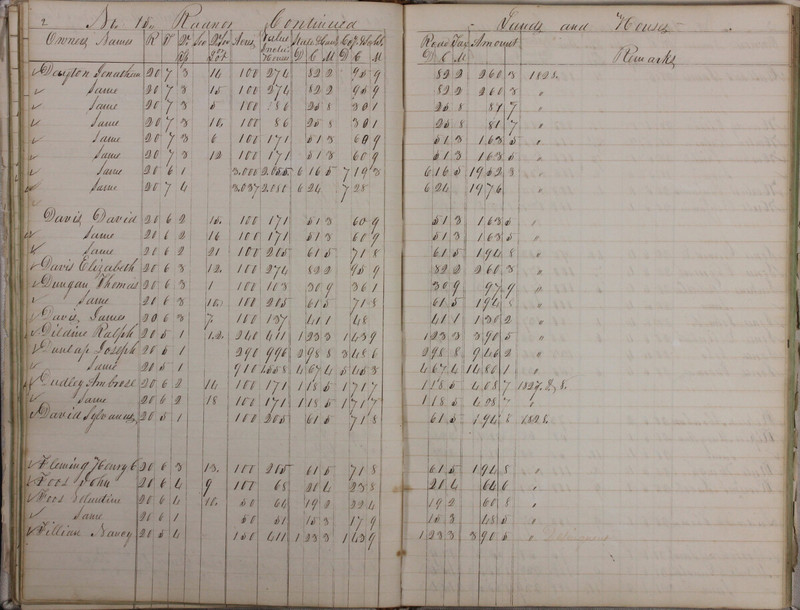 2 No 15. Radnor Continued Lands and Houses
Owners Names R T Qr Sec Acres Value Houses State & Canal Co. & School Road Tax Amount Remarks
D C M D C M D C M
Jonathan 20 7 3 14 100 274 82 2 95 9 82 2 2 60 3 1828.
Same 20 7 3 15 100 274 82 2 95 9 82 2 2 60 3 "
Same 20 7 3 5 100 86 25 8 30 1 25 8 81 7 "
Same 20 7 3 10 100 86 25 8 30 1 25 8 81 7 "
Same 20 7 3 6 100 171 51 3 60 9 51 3 1 63 5 "
Same 20 7 3 12 100 171 51 3 60 9 51 3 1 63 5 "
Same 20 6 1 3.000 2.055 6 16 5 7 19 3 6 16 5 19 52 3 "
Same 20 7 4 3.037 2.080 6 24 7 28 6 24 19 76 "
Davis David 20 6 2 15. 100 171 51 3 60 9 51 3 1 63 5 "
Same 20 6 2 16 100 171 51 3 60 9 51 3 1 63 5 "
Same 20 6 2 21 100 205 61 5 71 8 61 5 1 94 8 "
Davis Elizabeth 20 6 3 12. 100 274 82 2 95 9 82 2 2 60 3 "
Dungan Thomas 20 6 3 1 100 103 30 9 36 1 30 9 97 9 "
Same 20 6 3 10. 100 205 61 5 71 8 61 5 1 94 8 "
Davis, James 20 6 3 7. 100 137 41 1 48 41 1 1 30 2 "
Dildine Ralph 20 5 1 1.2. 240 411 1 23 3 1 43 9 1 23 3 3 90 5 "
Dunlap Joseph 20 5 1 290 996 2 98 8 3 48 6 2 98 8 9 46 2 "
Same 20 5 1 910 1.558 4 67 4 5 45 3 4 67 4 14 80 1 "
Dudley Ambrose 20 6 2 14 100 171 1 18 5 1 71 7 1 18 5 4 08 7 1827. & 8.
Same 20 6 2 18 100 171 1 18 5 1 71 7 1 18 5 4 08 7 "
David Sylvanus 20 5 1 100 205 61 5 71 8 61 5 1 94 8 1828.
Fleming Henry 20 6 3 13. 100 205 61 5 71 8 61 5 1 94 8 "
Foos John 20 6 4 9 100 68 20 4 23 8 20 4 64 6 "
Foos 20 6 4 10. 50 64 19 2 22 4 19 2 60 8 "
Same 20 6 1 50 51 15 3 17 9 15 3 48 5 "
Nancy 20 5 4 150 411 1 23 3 1 43 9 1 23 3 3 90 5 "